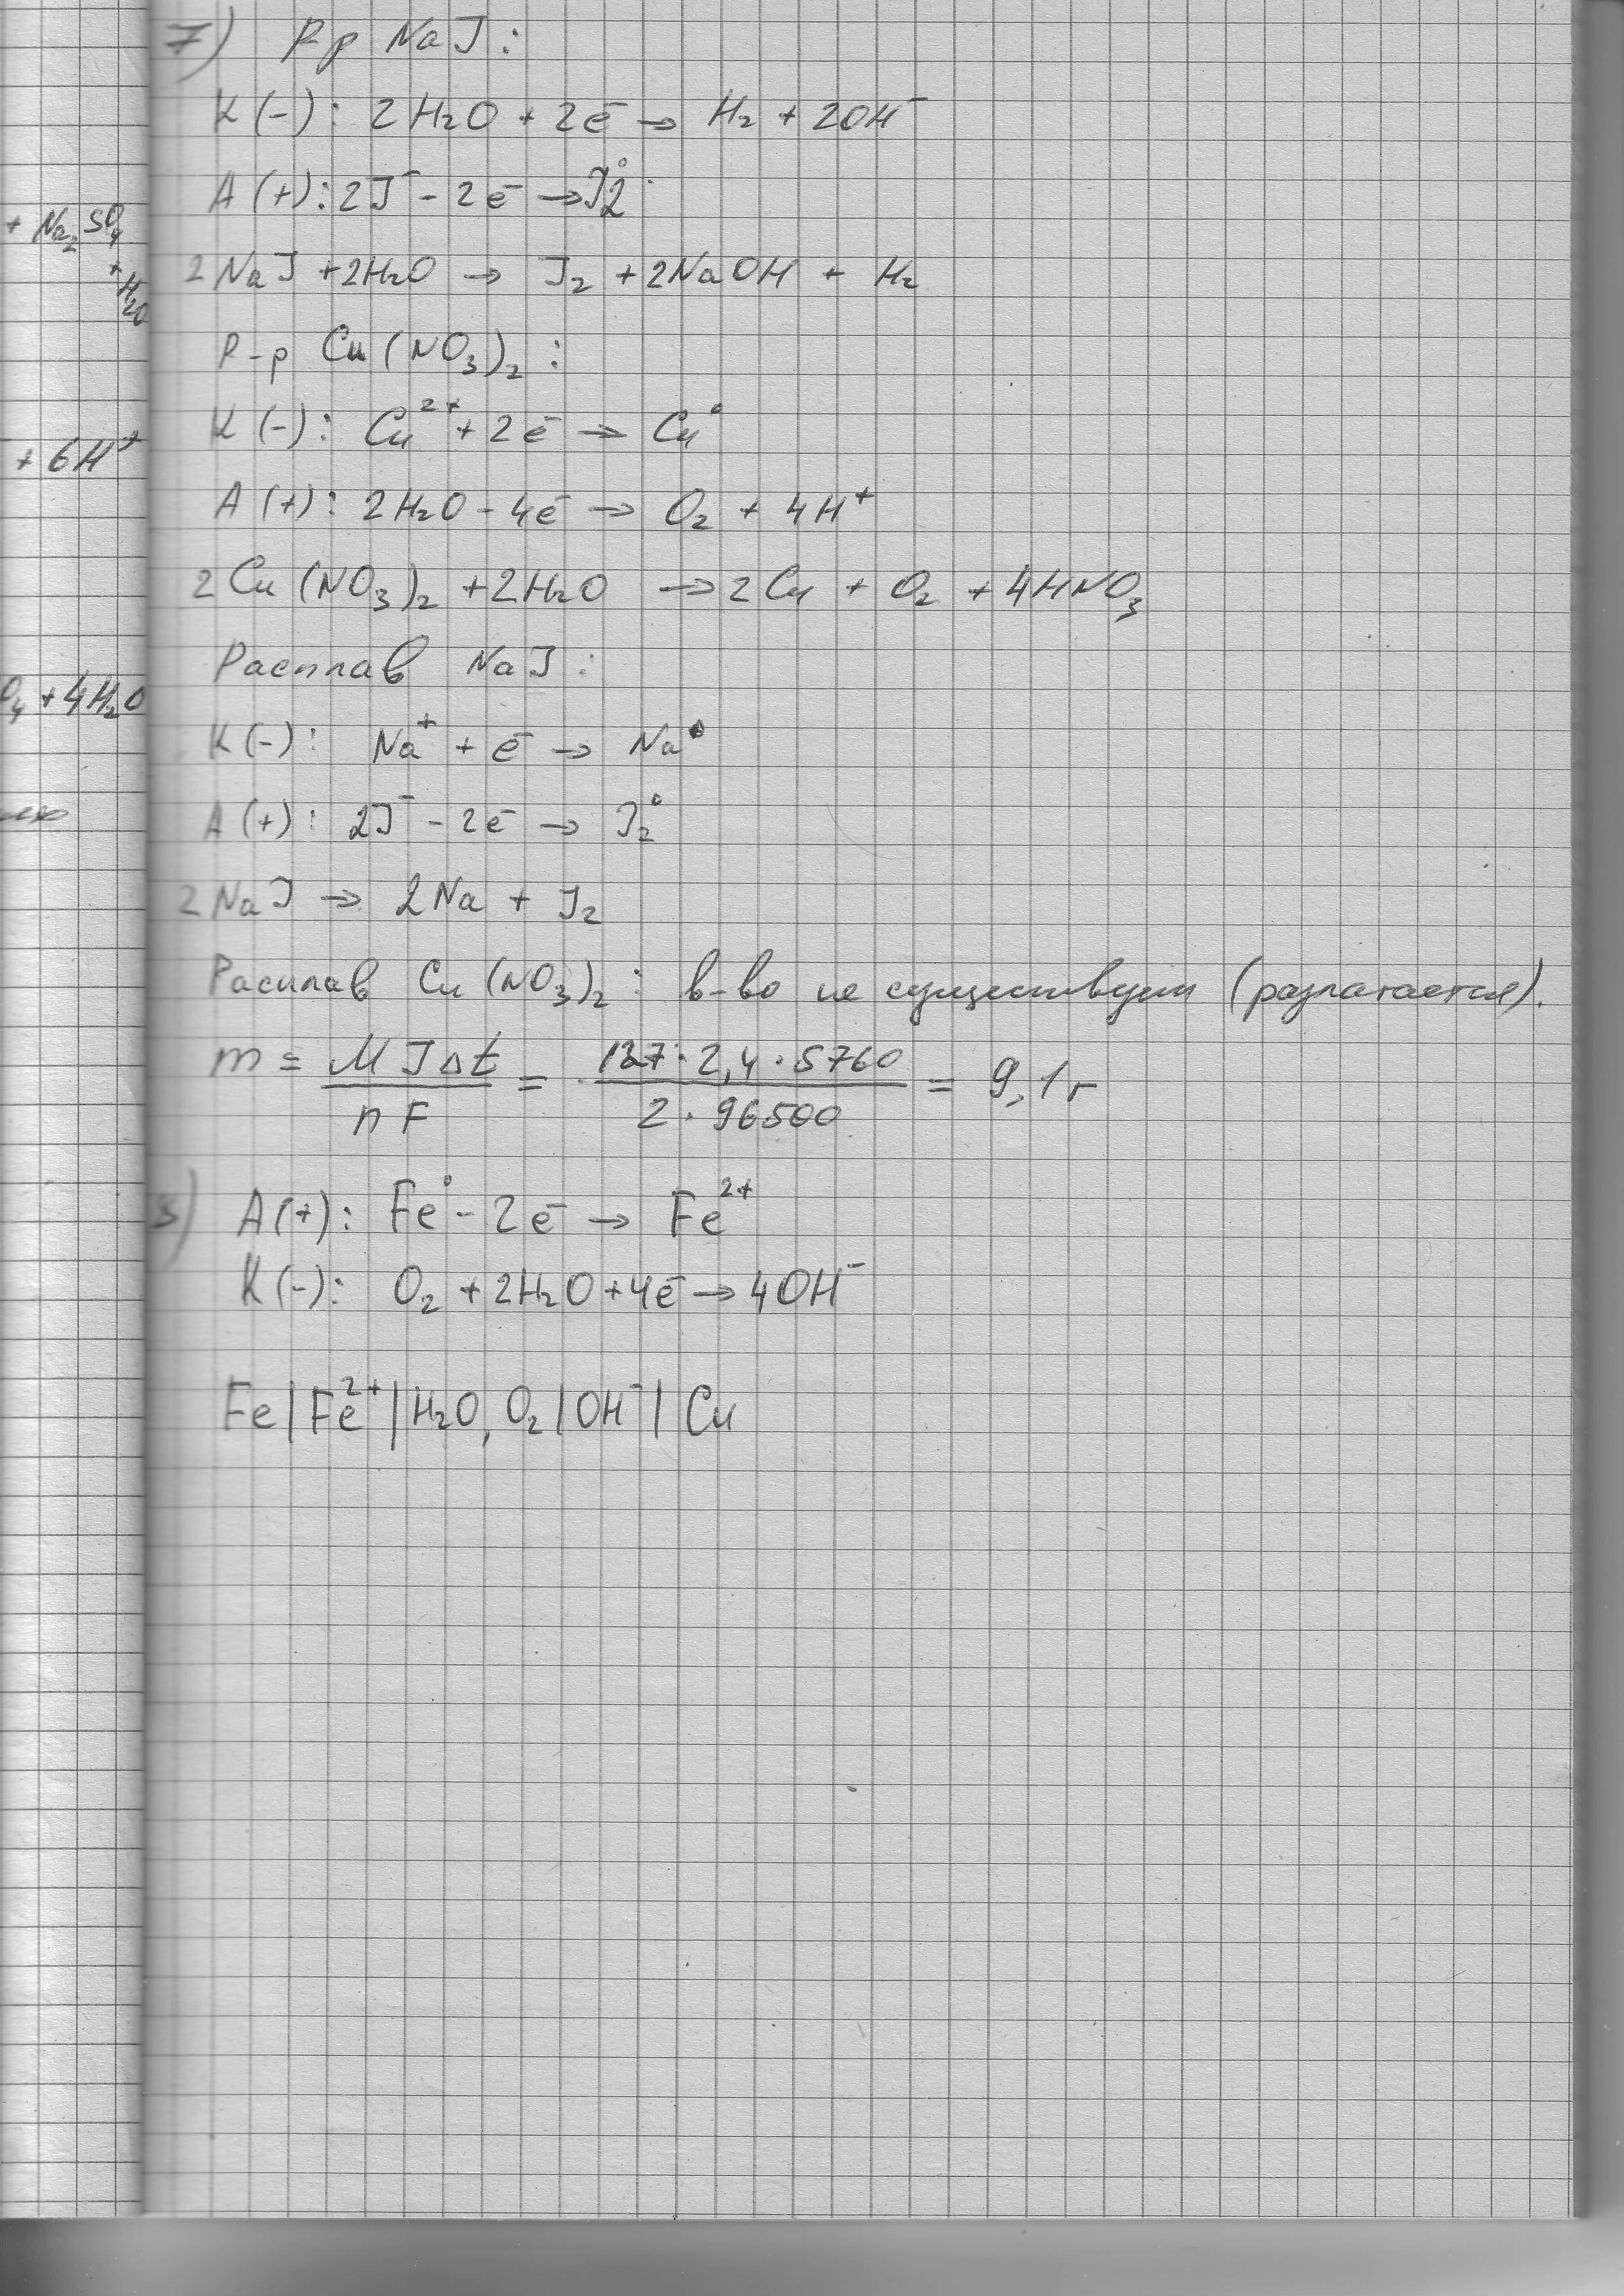 + Na₂SO₄
+ H₂O
+ 6H⁺
O₄ + 4H₂O
7) Р-р NaJ:
К(-): 2H₂O + 2ē → H₂ + 2OH⁻
А(+): 2J⁻ - 2ē → J₂⁰
2NaJ + 2H₂O → J₂ + 2NaOH + H₂
Р-р Cu(NO₃)₂:
К(-): Cu²⁺ + 2ē → Cu⁰
А(+): 2H₂O - 4ē → O₂ + 4H⁺
2Cu(NO₃)₂ + 2H₂O → 2Cu + O₂ + 4HNO₃
Расплав NaJ:
К(-): Na⁺ + ē → Na⁰
А(+): 2J⁻ - 2ē → J₂⁰
2NaJ → 2Na + J₂
Расплав Cu(NO₃)₂: в-во не существует (разлагается).
m = MJΔt / nF = 127·2,4·5760 / 2·96500 = 9,1 г
8) А(+): Fe⁰ - 2ē → Fe²⁺
К(-): O₂ + 2H₂O + 4ē → 4OH⁻
Fe|Fe²⁺|H₂O, O₂|OH⁻|Cu